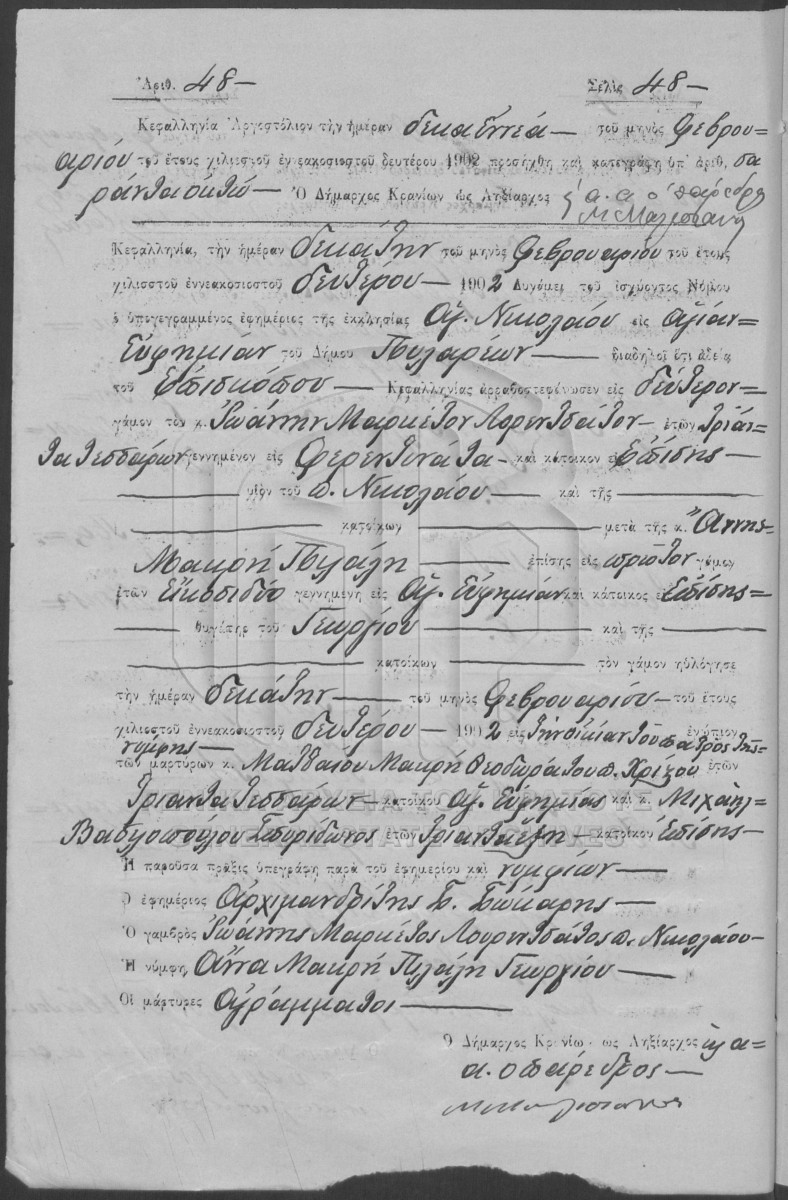 Ἀριθ. 48 — Σελὶς 48 —
Κεφαλληνία Ἀργοστόλιον τὴν ἡμέραν δεκαεννέα — τοῦ μηνὸς Φεβρου=
αρίου τοῦ ἔτους χιλιοστοῦ ἐννεακοσιοστοῦ δευτέρου 1902 προσήχθη καὶ κατεγράφη ὑπ' ἀριθ. σα
ράντα οκτώ — Ὁ Δήμαρχος Κρανίων ὡς Ληξίαρχος α. α. ο πάρεδρος
Κεφαλληνία, τὴν ἡμέραν δεκάτην τοῦ μηνὸς Φεβρουαρίου τοῦ ἔτους
χιλιοστοῦ ἐννεακοσιοστοῦ δευτέρου — 1902 Δυνάμει τοῦ ἰσχύοντος Νόμου
ὁ ὑπογεγραμμένος ἐφημέριος τῆς ἐκκλησίας Αγ. Νικολάου εἰς Αγίαν=
Ευφημίαν τοῦ Δήμου Πυλαρέων — διαδηλοῖ ὅτι ἀδείᾳ
τοῦ Επισκόπου — Κεφαλληνίας ἀρραβοστεφάνωσεν εἰς δεύτερον=
γάμον τον κ. Ιωάννην Μαρκέτον Λορεντσάτον — ἐτῶν τριάν=
τα τεσσάρων γεννημένον εἰς Φερεντινάτα — καὶ κάτοικον εἰς Επίσης —
υἱὸν τοῦ π. Νικολάου — καὶ τῆς
κατοίκων — μετὰ τῆς κ. Άννης=
Μακρή Πιλάλη — ἐπίσης εἰς πρώτον γάμον
ἐτῶν Εικοσιδύο γεννημένη εἰς Αγ. Ευφημίαν καὶ κάτοικος εἰς Επίσης=
θυγάτηρ τοῦ Γεωργίου — καὶ τῆς
κατοίκων — τὸν γάμον ηὐλόγησε
τὴν ἡμέραν δεκάτην — τοῦ μηνὸς Φεβρουαρίου — τοῦ ἔτους
χιλιοστοῦ ἐννεακοσιοστοῦ δευτέρου — 1902 εἰς την οικίαν του πατρός της= ἐνώπιον
νύμφης —
τῶν μαρτύρων κ. Ματθαίου Μακρή Θεοδωράτου π. Χρίζου ἐτῶν
τριάντα τεσσάρων — κατοίκου Αγ. Ευφημίας καὶ κ. Μιχαήλ=
Βασιλοπούλου Σπυρίδωνος ἐτῶν τριάντα έξη — κατοίκου Επίσης —
Ἡ παροῦσα πρᾶξις ὑπεγράφη παρὰ τοῦ ἐφημερίου καὶ νυμφίων —
Ὁ ἐφημέριος Αρχιμανδρίτης Σ. —
Ὁ γαμβρὸς Ιωάννης Μαρκέτος Λουρεντσάτος π. Νικολάου —
Ἡ νύμφη Άννα Μακρή Πιλάλη Γεωργίου —
Οἱ μάρτυρες Αγράμματοι —
Ὁ Δήμαρχος Κρανίων ὡς Ληξίαρχος
α. ο πάρεδρος —